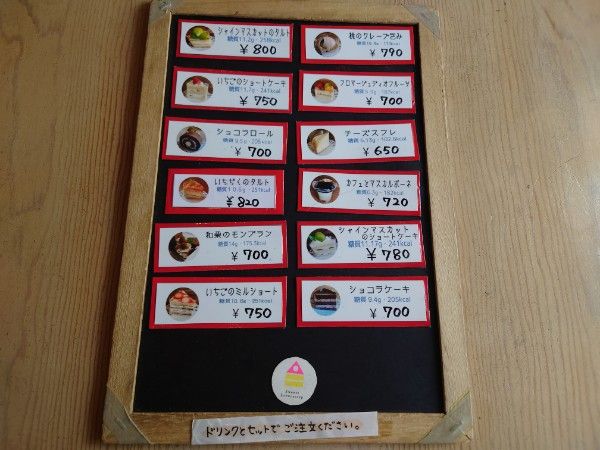 シャインマスカットのタルト
糖質11.2g・258kcal
¥800
桃のクレープ包み
¥790
いちごのショートケーキ
糖質11.7g・241kcal
¥750
フロマージュディオフルーツ
¥700
ショコラロール
糖質9.5g・206kcal
¥700
チーズスフレ
¥650
いちじくのタルト
糖質10.6g・251kcal
¥820
カフェとマスカルポーネ
糖質6.3g・182kcal
¥720
和栗のモンブラン
糖質14g・175.5kcal
¥700
シャインマスカット
のショートケーキ
糖質11.17g・241kcal
¥780
いちごのミルショート
糖質10.8g・251kcal
¥750
ショコラケーキ
糖質9.4g・205kcal
¥700
ドリンクとセットでご注文ください。